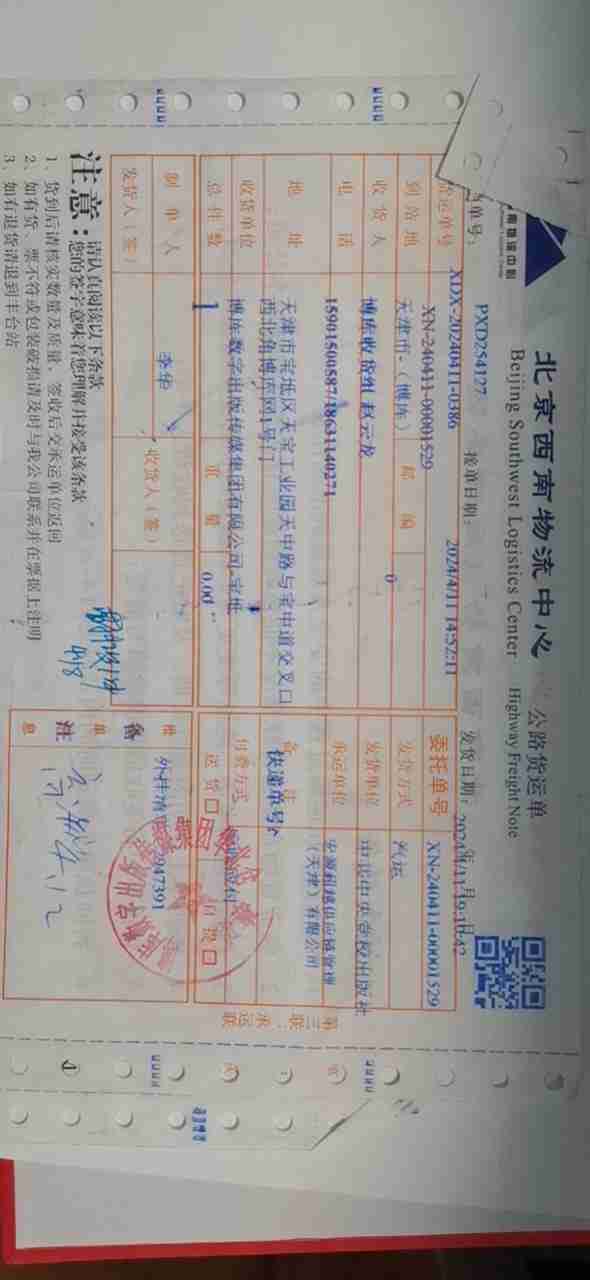 北京西南物流中心 公路货运单
Beijing Southwest Logistics Center Highway Freight Note
单号: PXD254127 接单日期: 2024/4/11 14:52:11 发货日期:
货运单号 XDX-20240411-0386
XN-240411-00001529
委托单号 XN-240411-00001529
到站地 天津市-（博库） 邮编 0 发货方式 汽运
收货人 博库收货组 赵云龙 发货单位 中共中央党校出版社
电话 15901500587/18631140271 承运单位
（天津）有限公司
地址 天津市宝坻区天宝工业园天中路与宝中道交叉口
西北角博库网1号门
备注 快递单号:
收货单位 博库数字出版传媒集团有限公司-宝坻 付费方式
总件数 1 重量 0.00 送货口 自提口
制单人 李华
发货人（签） 收货人（签）
备注
第三联：承运联
注意：请认真阅读以下条款
您的签字意味着您理解并接受该条款
1、货到后请核实数量及质量，签收后交承运单位返回
2、如有货、票不符或包装破损请及时与我公司联系并在票据上注明
3、如有退货请退到丰台站
4/8